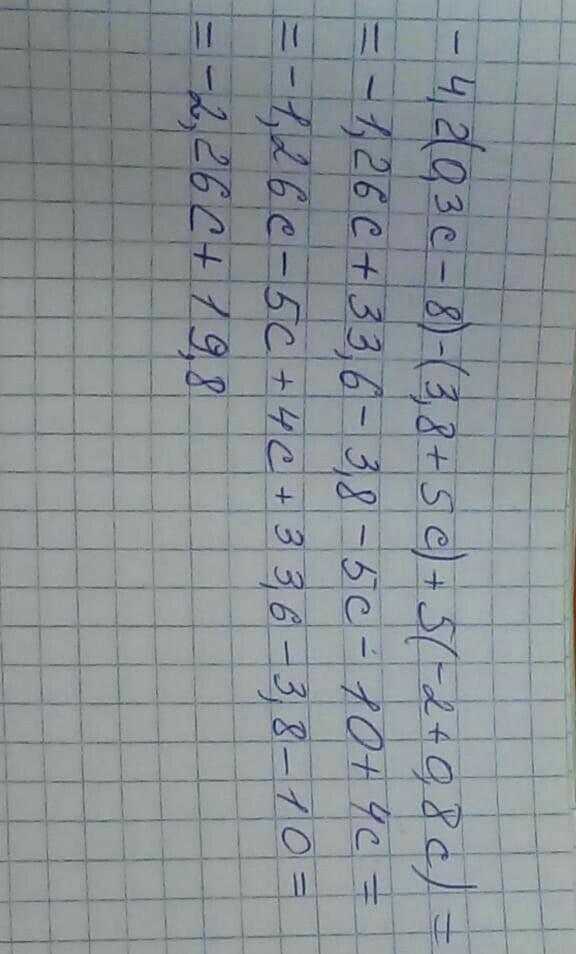 -4,2(0,3c-8)-(3,8+5c)+5(-2+0,8c)=
=-1,26c+33,6-3,8-5c-10+4c=
=-1,26c-5c+4c+33,6-3,8-10=
=-2,26c+19,8